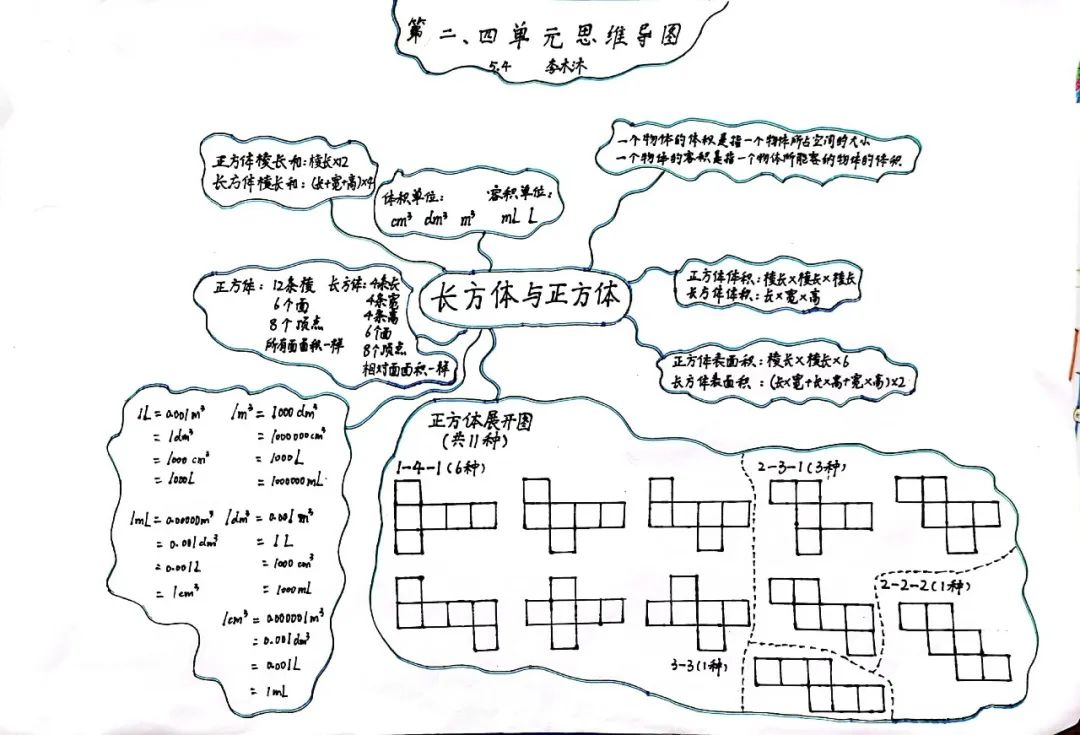 第二、四单元思维导图
5.4 李木沐
正方体棱长和:棱长×12
长方体棱长和:(长+宽+高)×4
体积单位: 容积单位:
cm³ dm³ m³ mL L
一个物体的体积是指一个物体所占空间的大小
一个物体的容积是指一个物体所能容纳物体的体积
长方体与正方体
正方体: 12条棱
6个面
8个顶点
所有面面积一样
长方体: 4条长
4条宽
4条高
6个面
8个顶点
相对面面积一样
正方体体积:棱长×棱长×棱长
长方体体积:长×宽×高
正方体表面积:棱长×棱长×6
长方体表面积:(长×宽+长×高+宽×高)×2
1L=0.001m³
=1dm³
=1000cm³
=1000L
1m³=1000dm³
=1000000cm³
=1000L
=1000000mL
1mL=0.00000m³
=0.001dm³
=0.001L
=1cm³
1dm³=0.001m³
=1L
=1000cm³
=1000mL
1cm³=0.000001m³
=0.001dm³
=0.001L
=1mL
正方体展开图
(共11种)
1-4-1(6种)
2-3-1(3种)
2-2-2(1种)
3-3(1种)